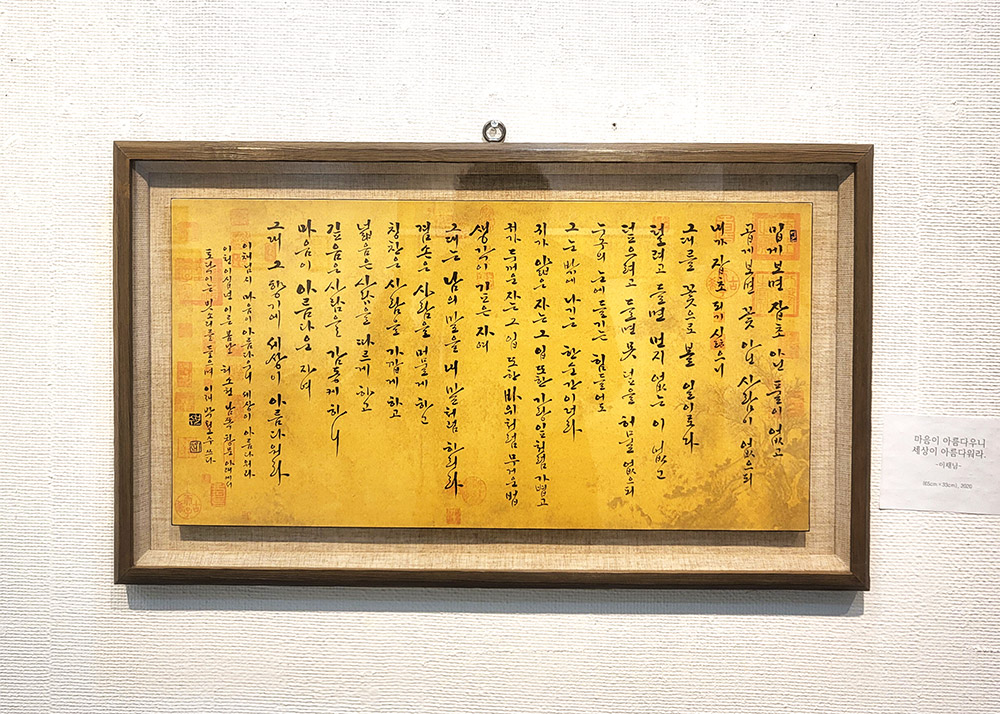 밉게 보면 잡초 아닌 풀이 없고
곱게 보면 꽃 아닌 사람이 없으되
내가 잡초 되기 싫으니
그대를 꽃으로 볼 일이로다
털려고 들면 먼지 없는 이 없고
덮으려고 들면 못 덮을 허물 없으되
누구의 눈에 들기는 힘들어도
그 눈 밖에 나기는 한 순간이더라
귀가 얇은 자는 그 입 또한 가랑잎처럼 가볍고
귀가 두꺼운 자는 그 입 또한 바위처럼 무거운 법
생각이 깊은 자여
그대는 남의 말을 내 말처럼 하리라
겸손은 사람을 머물게 하고
칭찬은 사람을 가깝게 하고
넓음은 사람을 따르게 하고
깊음은 사람을 감동케 하니
마음이 아름다운 자여
그대 그 향기에 세상이 아름다워라
이채님의 마음이 아름다우니 세상이 아름다워라
이천이십년 이른 봄날 남쪽 창문 아래에서
토닥이는 빗소리를 들으며 쓰다
마음이 아름다우니
세상이 아름다워라.
-이채님-
(65cm × 33cm), 2020